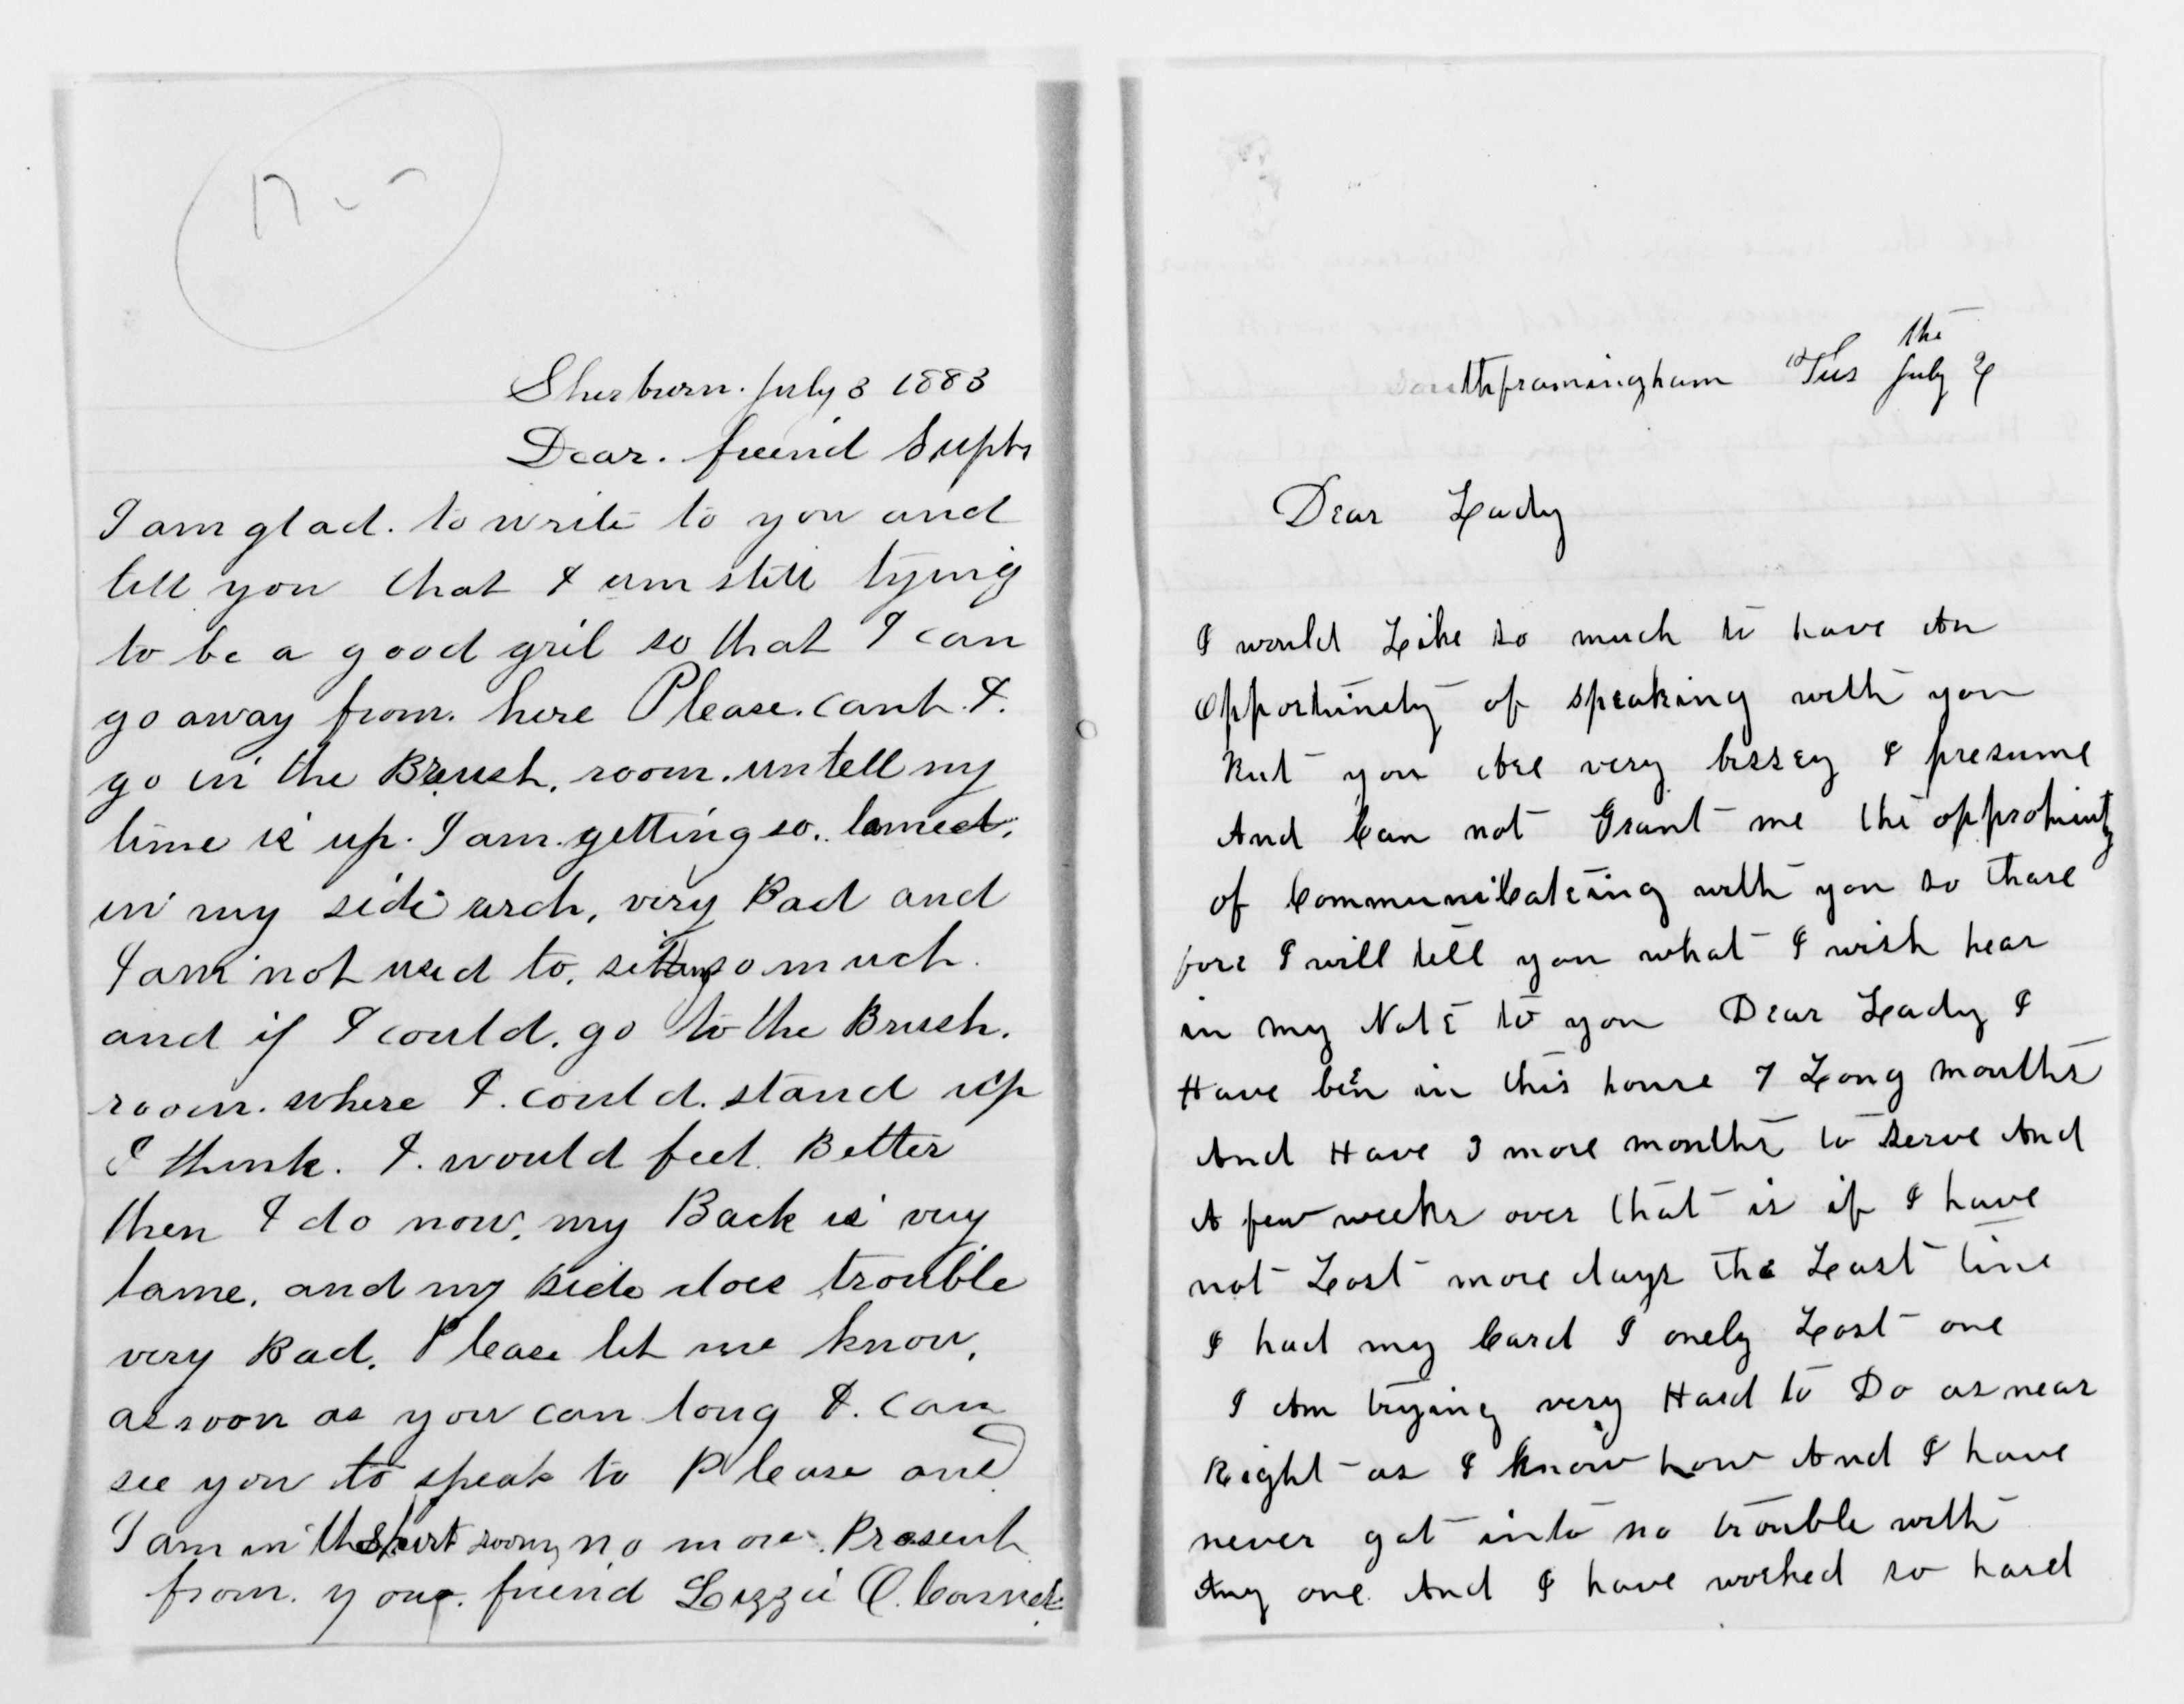 Sherburn. July 3 1883
Dear. freind Supts
I am glad. to write to you and
tell you that I am still tying
to be a good gril so that I can
go away from. here Please. cant. I.
go in the Brush. room. untell my
time is up. I am. getting so.. lamed.
in my side arch, very Bad and
I am not used to. sitting so much.
and if I could. go to the Brush.
room. where I. could. stand up
I think. I. would feel. Better
then I do now. my Back is very
lame. and my side does trouble
very Bad. Please let me know.
as soon as you can long I. can
see you to speak to Please and
I am in the shirt room no more. Present
from. your. friend Lizzie O.
Southframingham Tus July the
Dear Lady
I would Like so much to have An
Opportunety of speaking with you
But you Are very bissey I presume
And Can not Grant me the opprotunity
of Communicateing with you so thare
fore I will tell you what I wish hear
in my Note to you Dear Lady I
Have been in this house 7 Long months
And Have 3 more months to serve And
A few weeks over that is if I have
not Lost more days the Last time
I had my Card I onely Lost one
I Am trying very Hard to Do as near
Right as I know how And I have
never got into no trouble with
Any one. And I have worked so hard